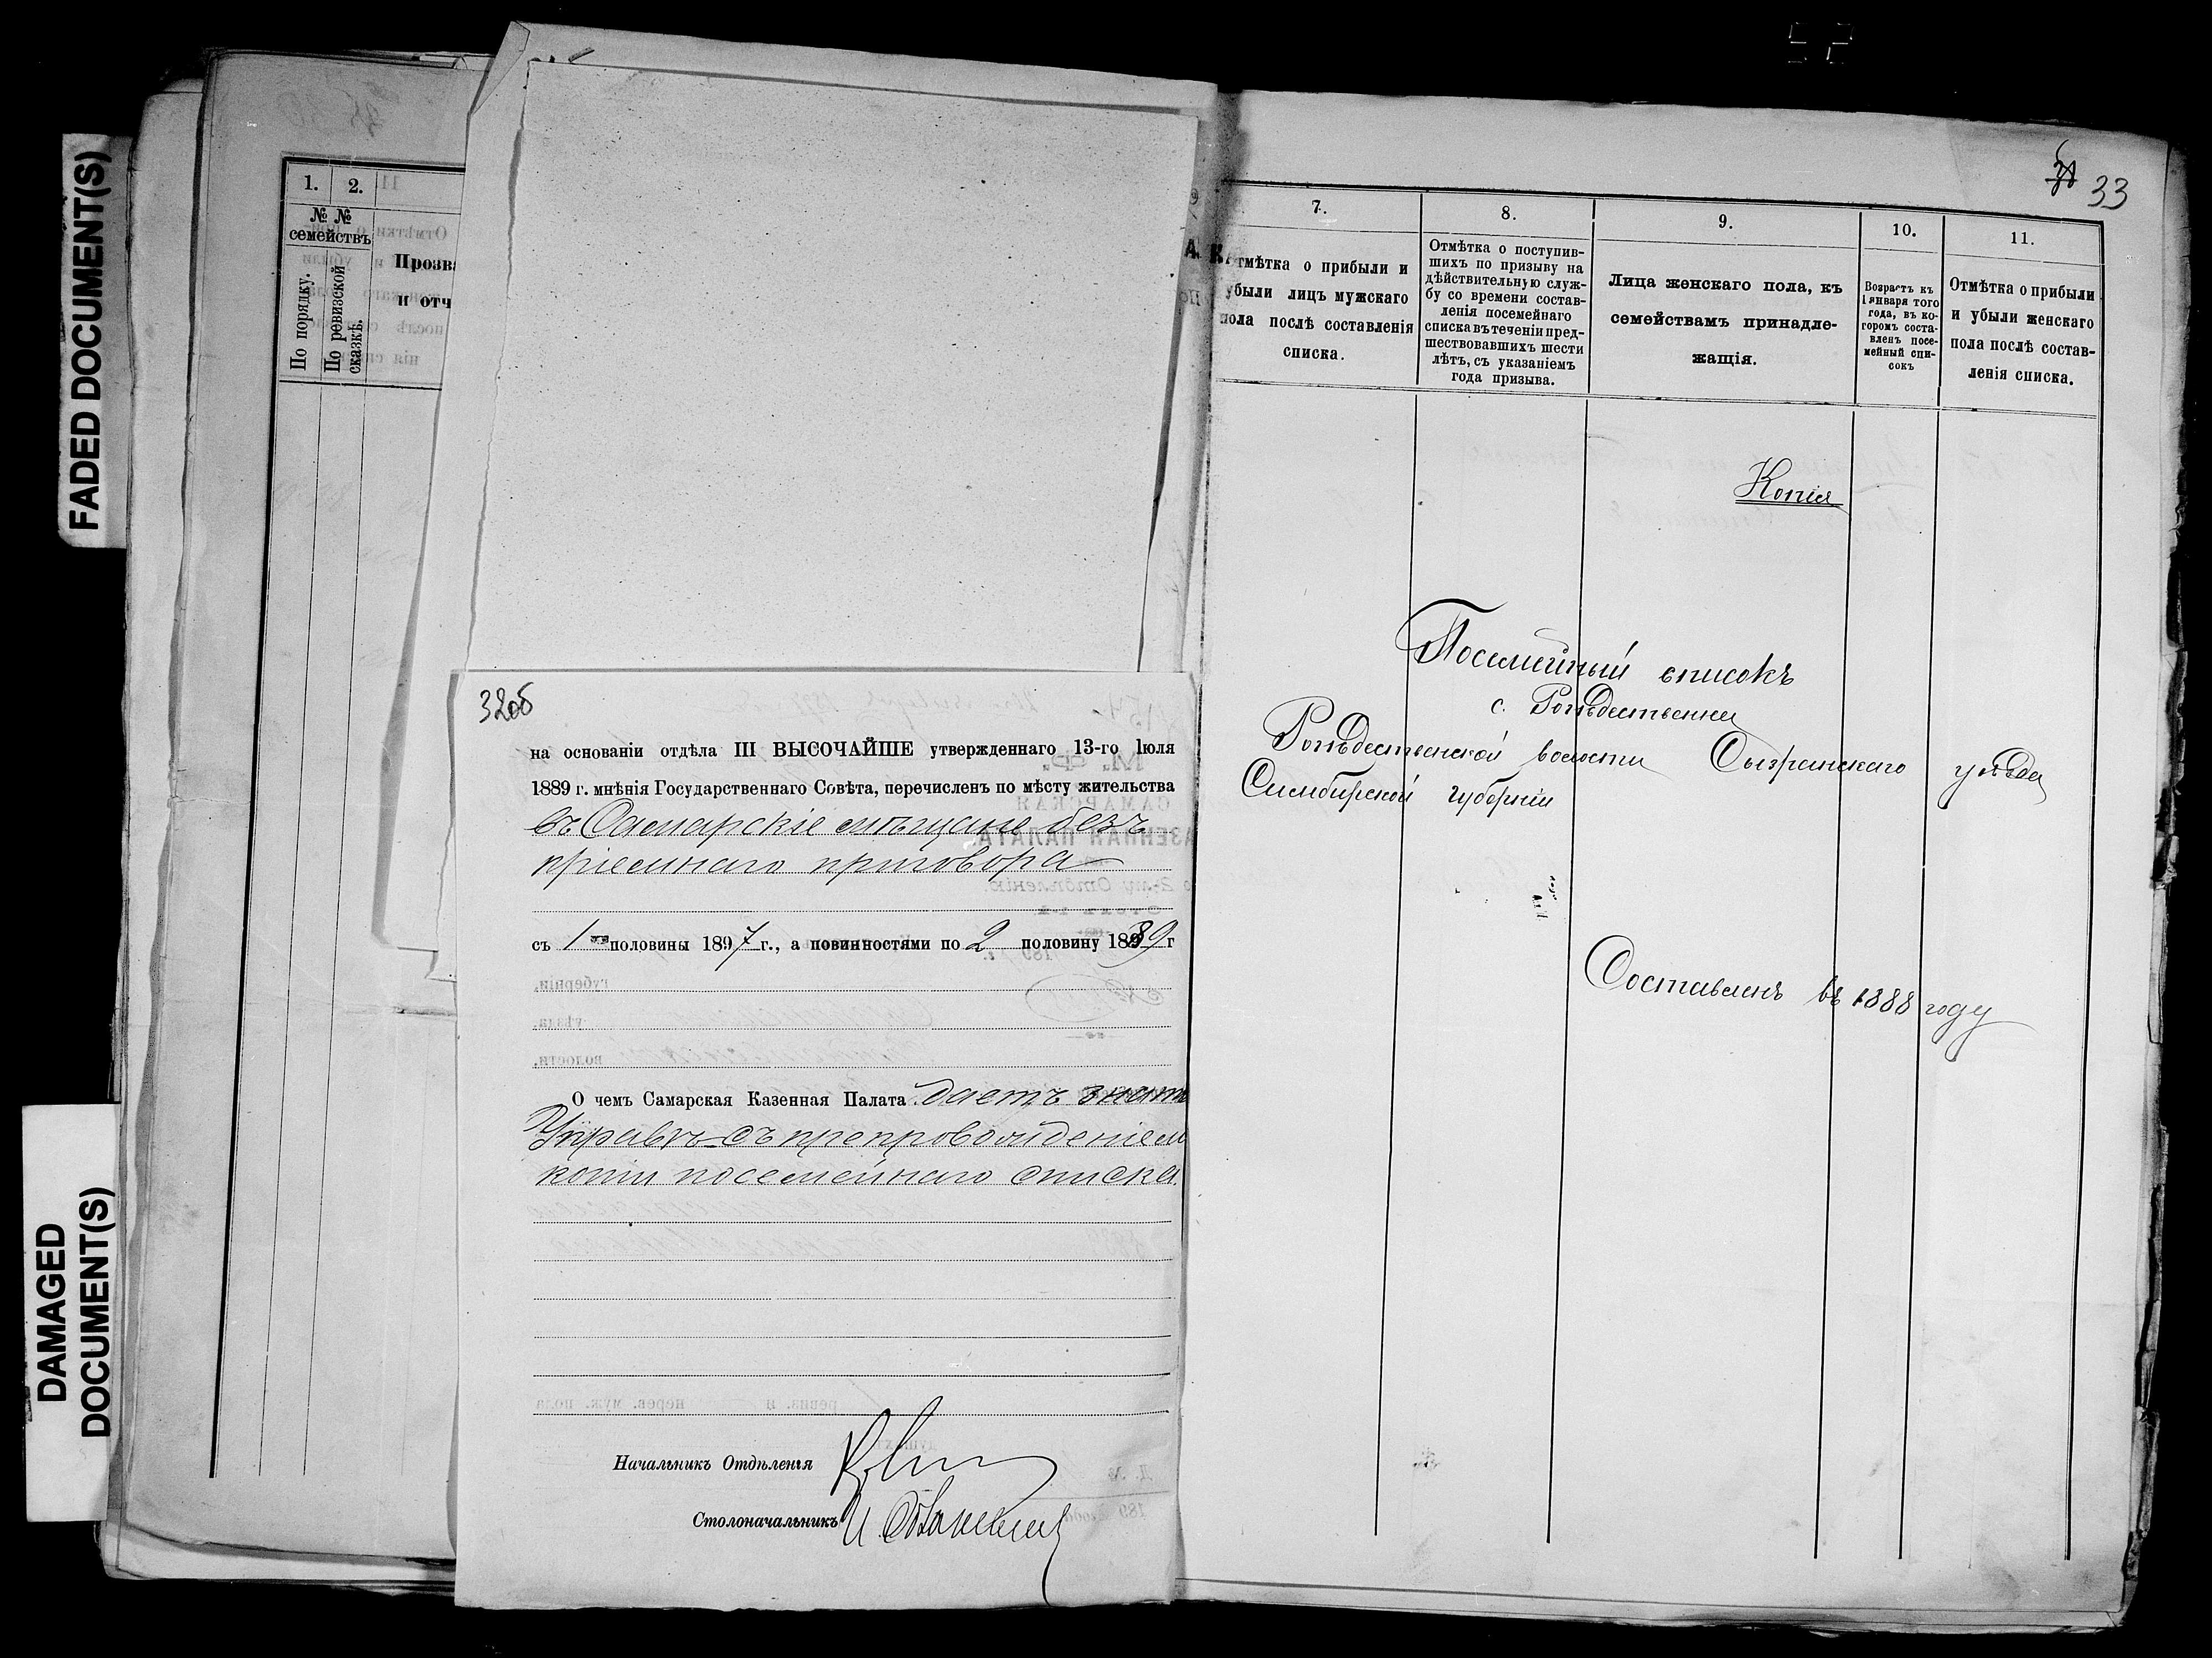 FADED DOCUMENT(S)
DAMAGED
DOCUMENT(S)
1.
2.
№ №
семействъ
По порядку.
По ревизской
сказкѣ.
Прозв
и отч
32об
на основаніи отдѣла III ВЫСОЧАЙШЕ утвержденнаго 13-го Іюля
1889 г. мнѣнія Государственнаго Совѣта, перечисленъ по мѣсту жительства
въ Самарскіе мѣщане безъ
пріемнаго приговора
съ 1 половины 1897 г., а повинностями по 2 половину 1889 г
О чемъ Самарская Казенная Палата даетъ знать
Управѣ съ препровожденіем
копіи посемейнаго списка.
Начальникъ Отдѣленія
Столоначальникъ
33
7.
тмѣтка о прибыли и
убыли лицъ мужскаго
пола послѣ составленія
списка.
8.
Отмѣтка о поступив-
шихъ по призыву на
дѣйствительную служ-
бу со времени состав-
ленія посемейнаго
списка въ теченіи пред-
шествовавшихъ шести
лѣтъ, съ указаніемъ
года призыва.
9.
Лица женскаго пола, къ
семействамъ принадле-
жащія.
10.
Возрастъ къ
1 января того
года, въ ко-
горомъ соста-
вленъ посе-
мейный спи-
сокъ
11.
Отмѣтка о прибыли
и убыли женскаго
пола послѣ состав-
ленія списка.
Копія
Посемейный списокъ
с. Рождествена
Рождественской волости Сызранскаго уѣзда
Симбирской губерніи
Составленъ въ 1888 году